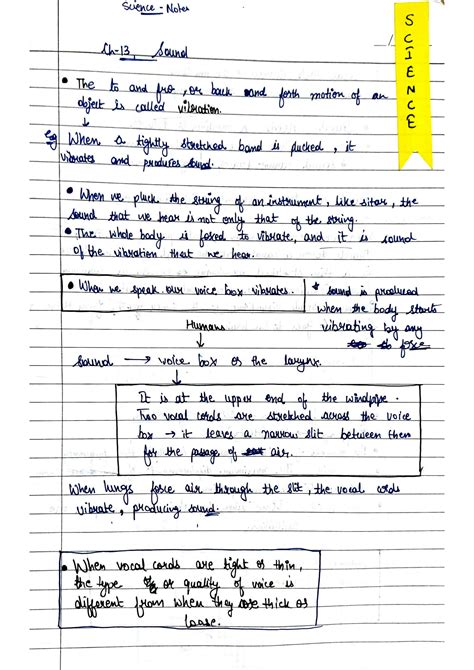 Science - Notes
SCIENCE
Ch-13, Sound
• The to and fro, or back and forth motion of an
object is called vibration.
Eg When a tightly stretched band is plucked, it
vibrates and produres sound.
• When we pluck the string of an instrument, like sitar, the
sound that we hear is not only that of the string.
• The whole body is forced to vibrate, and it is sound
of the vibration that we hear.
• When we speak our voice box vibrates.
* sound is produced
when the body starts
vibrating by any
force
Humans
sound → voice box or the larynx.
It is at the upper end of the windpipe.
Two vocal cords are stretched across the voice
box → it leaves a narrow slit between them
for the passage of air.
When lungs force air through the slit, the vocal cords
vibrate, producing sound.
• When vocal cords are tight or thin,
the type or quality of voice is
different from when they are thick or
loose.